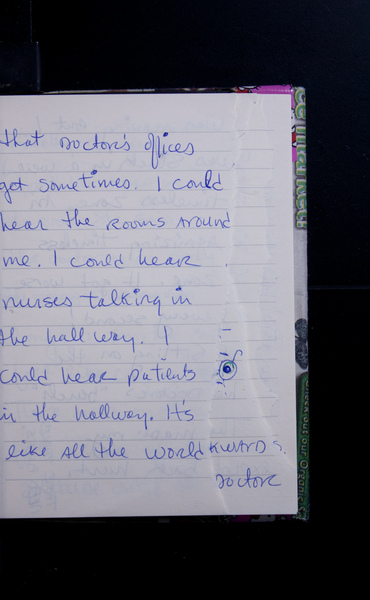 that Doctor's offices
get sometimes. I could
hear the Rooms Around
me. I could hear
nurses talking in
the hallway. I
could hear patients
in the hallway. It's
like All the world KWARDS.
Doctor